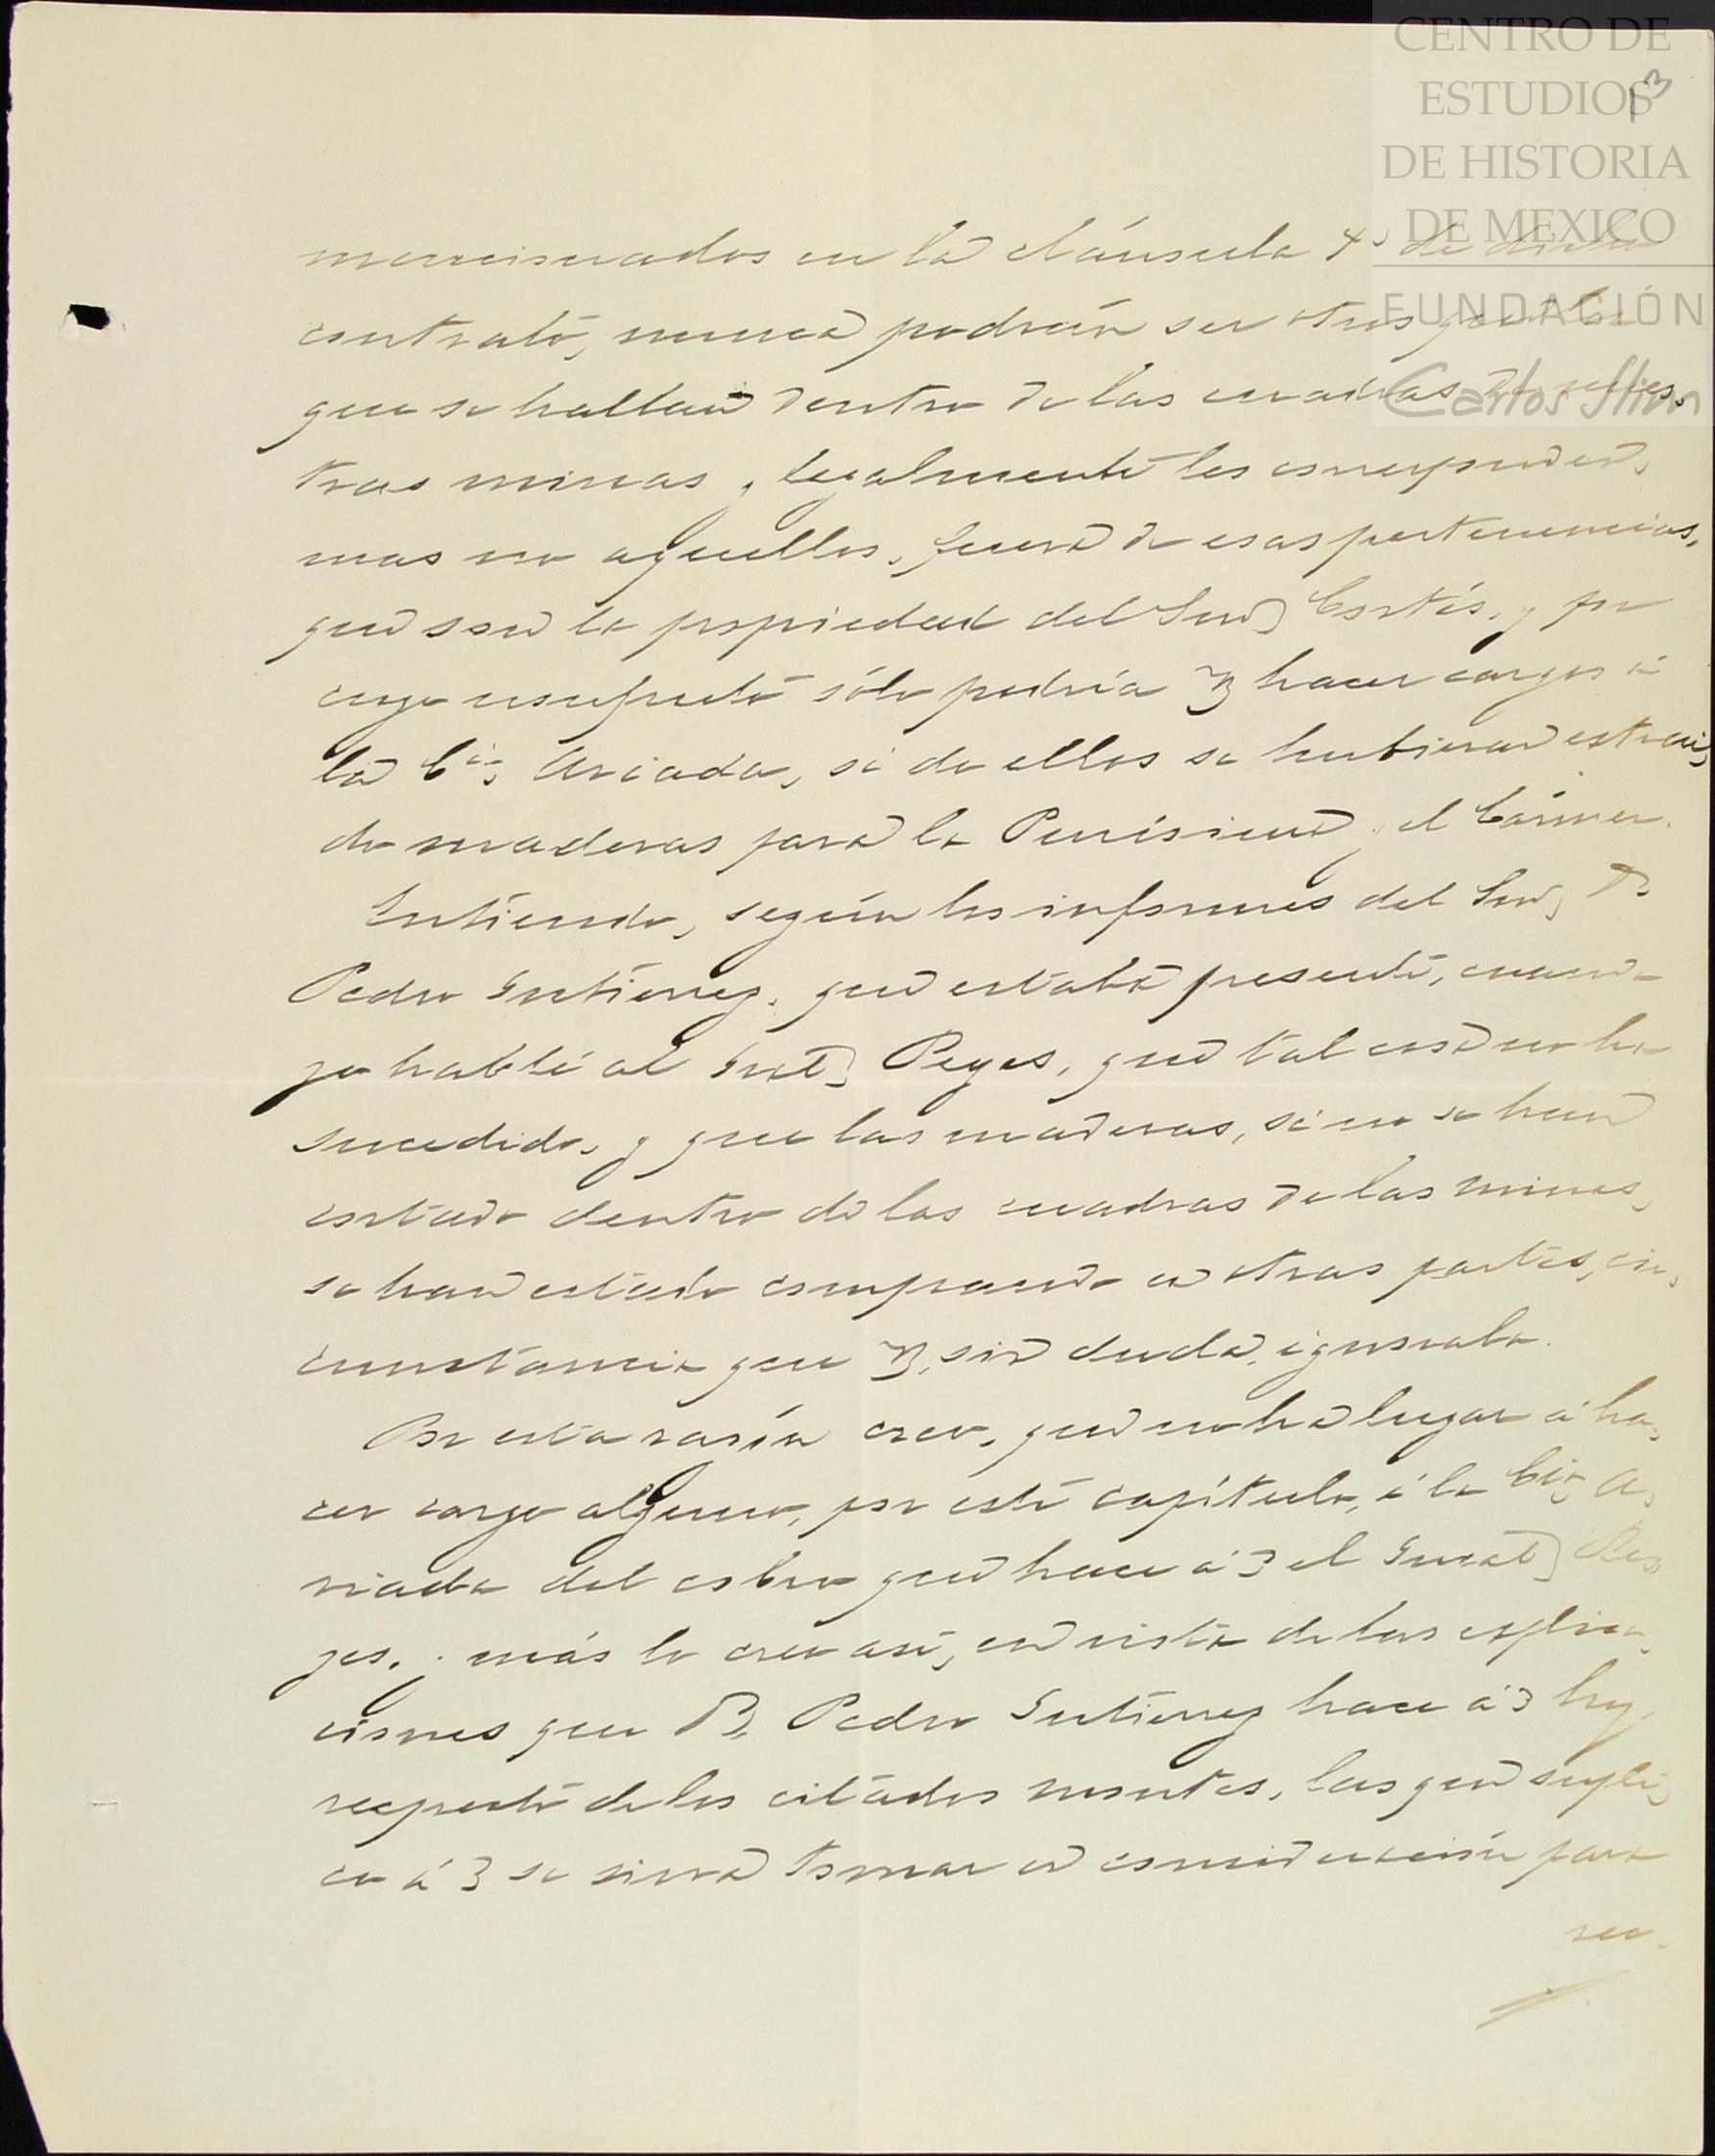 CENTRO DE
ESTUDIOS
DE HISTORIA
DE MEXICO
FUNDACIÓN
Carlos Slim
13
mencionados en la cláusula 4ª de dicho
contrato, nunca podrán ser otros que los
que se hallan dentro de las cuadras de nues-
tras minas y legalmente les corresponden,
mas no aquellos, fuera de esas pertenencias,
que son la propiedad del Cortés, y por
cuyo usufructo sólo podría hacer cargos á
la Cía Aviada, si de ellos se hubieran extraí-
do maderas para la Purísima y el Cármen.
Entiendo, según los informes del D.
Pedro Gutierrez, que estaba presente, cuando
yo hablé al Gral. Reyes, que tal cosa no ha
sucedido, y que las maderas, si no se han
cortado dentro de las cuadras de las minas,
se han estado comprando en otras partes, cir-
cunstancia que sin duda, ignoraba.
Por esta razón creo, que no ha lugar á ha-
cer cargo alguno, por este capítulo, á la Cía A-
viada del cobro que hace á el Gral. Re-
yes, y más lo creo así, en vista de las explica-
ciones que D. Pedro Gutierrez hace á hoy,
respecto de los citados montes, las que supli-
co á se sirva tomar en consideración para